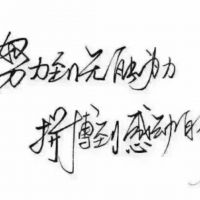 努力到无能为力
拼搏到感动自